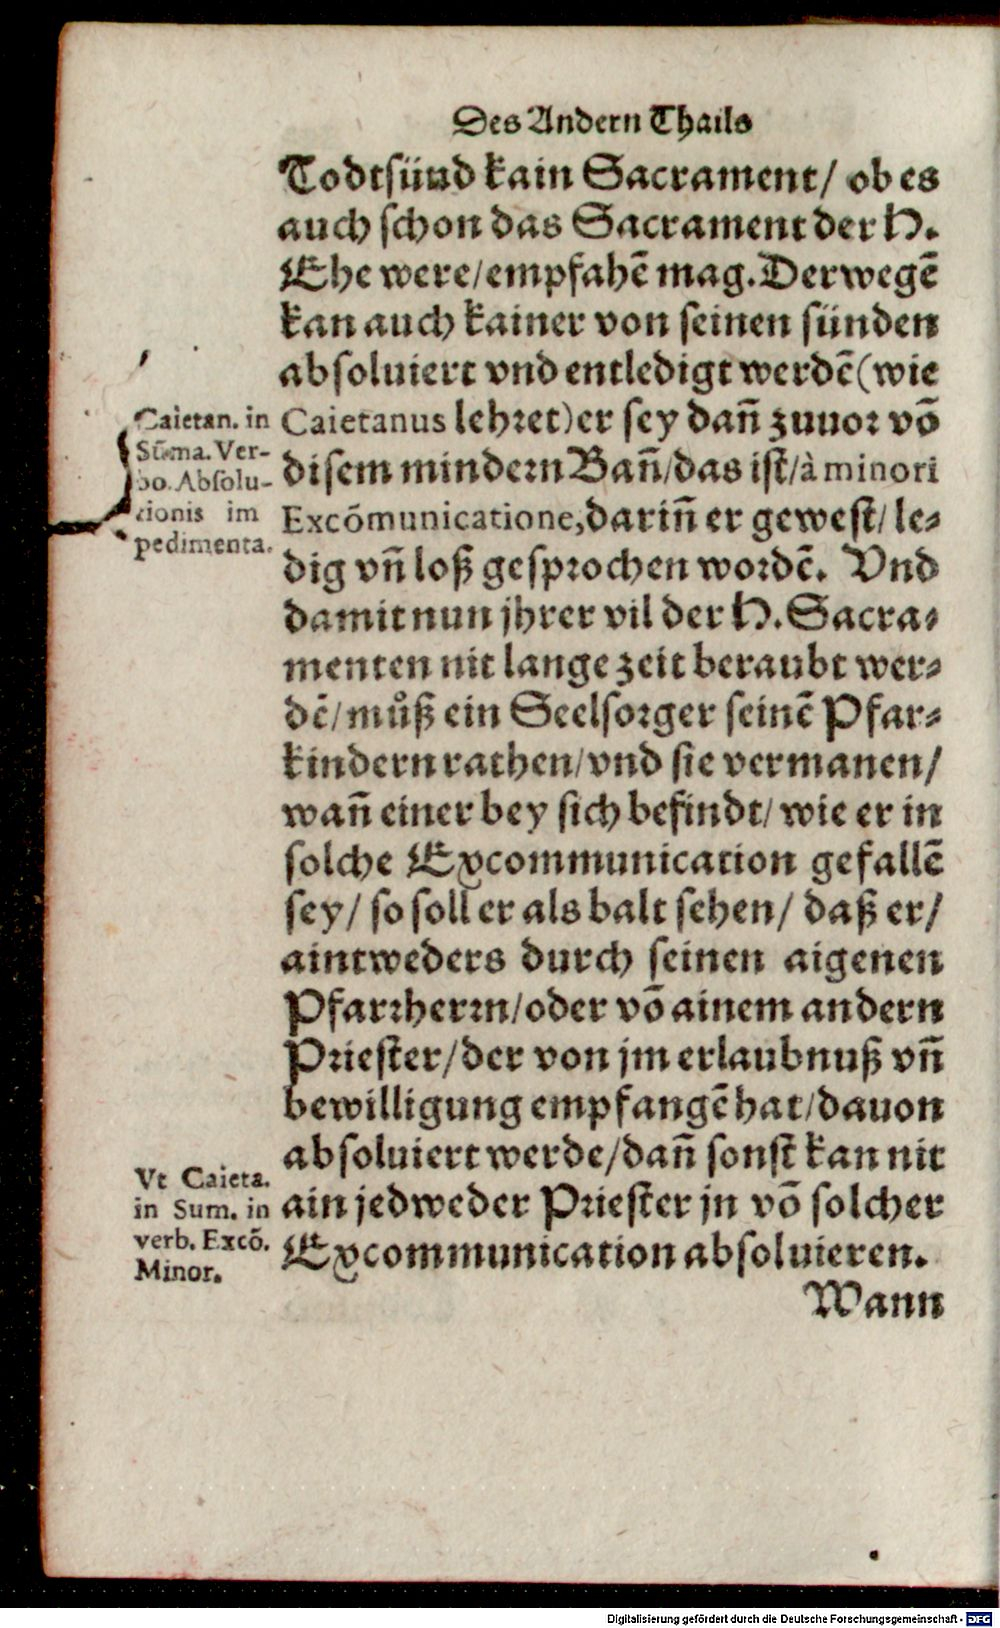 Des Andern Thails
Todtsünd kain Sacrament/ ob es
auch schon das Sacrament der H.
Ehe were/empfahẽ mag. Derwegẽ
kan auch kainer von seinen sünden
absoluiert vnd entledigt werdẽ (wie
Caietanus lehret) er sey dañ zuuor võ
disem mindern Bañ/das ist/à minori
Excõmunicatione, dariñ er gewest/ le-
dig vñ loß gesprochen wordẽ. Vnd
damit nun jhrer vil der H. Sacra-
menten nit lange zeit beraubt wer-
dẽ/můß ein Seelsorger seinẽ Pfar-
kindern rathen/vnd sie vermanen/
wañ einer bey sich befindt/ wie er in
solche Excommunication gefallẽ
sey/ so soll er als balt sehen/ daß er/
aintweders durch seinen aigenen
Pfarrherrn/oder võ ainem andern
Priester/der von jm erlaubnuß vñ
bewilligung empfangẽ hat/dauon
absoluiert werde/dañ sonst kan nit
ain jedweder Priester jn võ solcher
Excommunication absoluieren.
Wann
Caietan. in
Sũma. Ver-
bo. Absolu-
tionis im
pedimenta.
Vt Caieta.
in Sum. in
verb. Excõ.
Minor.
Digitalisierung gefördert durch die Deutsche Forschungsgemeinschaft - DFG